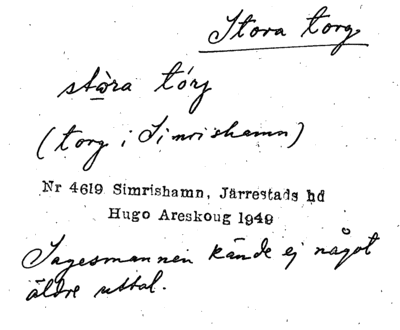 Stora torg
stòra tórg
(torg i Simrishamn)
Nr 4619 Simrishamn, Järrestads hd
Hugo Areskoug 1949
Sagesmannen kände ej något
äldre uttal.